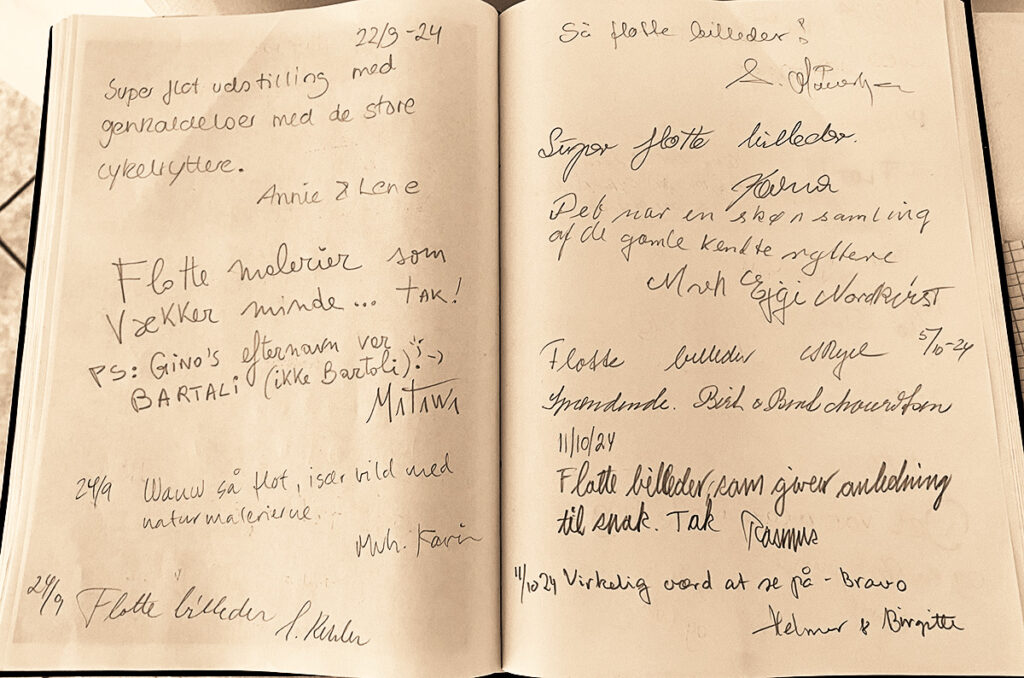 22/9-24
Super flot udstilling med
genkaldelser med de store
cykelryttere.
Annie & Lene
Flotte malerier som
Vækker minde... TAK!
PS: Gino's efternavn var
BARTALi (ikke Bartoli)!
24/9 Wauw så flot, især vild med
naturmalerierne.
Mvh. Karin
24/9 Flotte billeder
Så flotte billeder!
Super flotte billeder.
Det var en skøn samling
af de gamle kendte ryttere
Mvh Ejgi
Flotte billeder 5/10-24
Spændende.
11/10/24
Flotte billeder, som giver anledning
til snak. Tak Rasmus
11/10 24 Virkelig værd at se på - Bravo
Helmer & Birgitte